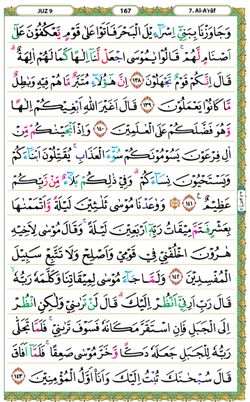 JUZ 9 167 7. Al-A'rāf
وَجَاوَزْنَا بِبَنِيْٓ اِسْرَاۤءِيْلَ الْبَحْرَ فَاَتَوْا عَلٰى قَوْمٍ يَّعْكُفُوْنَ عَلٰٓى
اَصْنَامٍ لَّهُمْ ۚ قَالُوْا يٰمُوْسَى اجْعَلْ لَّنَآ اِلٰهًا كَمَا لَهُمْ اٰلِهَةٌ ۗ
قَالَ اِنَّكُمْ قَوْمٌ تَجْهَلُوْنَ ١٣٨ اِنَّ هٰٓؤُلَاۤءِ مُتَبَّرٌ مَّا هُمْ فِيْهِ وَبٰطِلٌ
مَّا كَانُوْا يَعْمَلُوْنَ ١٣٩ قَالَ اَغَيْرَ اللّٰهِ اَبْغِيْكُمْ اِلٰهًا
وَّهُوَ فَضَّلَكُمْ عَلَى الْعٰلَمِيْنَ ١٤٠ وَاِذْ اَنْجَيْنٰكُمْ مِّنْ
اٰلِ فِرْعَوْنَ يَسُوْمُوْنَكُمْ سُوْۤءَ الْعَذَابِ ۚ يُقَتِّلُوْنَ اَبْنَاۤءَكُمْ
وَيَسْتَحْيُوْنَ نِسَاۤءَكُمْ ۗ وَفِيْ ذٰلِكُمْ بَلَاۤءٌ مِّنْ رَّبِّكُمْ
عَظِيْمٌ ١٤١ وَوٰعَدْنَا مُوْسٰى ثَلٰثِيْنَ لَيْلَةً وَّاَتْمَمْنٰهَا
بِعَشْرٍ فَتَمَّ مِيْقَاتُ رَبِّهٖٓ اَرْبَعِيْنَ لَيْلَةً ۚ وَقَالَ مُوْسٰى لِاَخِيْهِ
هٰرُوْنَ اخْلُفْنِيْ فِيْ قَوْمِيْ وَاَصْلِحْ وَلَا تَتَّبِعْ سَبِيْلَ
الْمُفْسِدِيْنَ ١٤٢ وَلَمَّا جَاۤءَ مُوْسٰى لِمِيْقَاتِنَا وَكَلَّمَهٗ رَبُّهٗ ۙ
قَالَ رَبِّ اَرِنِيْٓ اَنْظُرْ اِلَيْكَ ۗ قَالَ لَنْ تَرٰىنِيْ وَلٰكِنِ انْظُرْ
اِلَى الْجَبَلِ فَاِنِ اسْتَقَرَّ مَكَانَهٗ فَسَوْفَ تَرٰىنِيْ ۚ فَلَمَّا تَجَلّٰى
رَبُّهٗ لِلْجَبَلِ جَعَلَهٗ دَكًّا وَّخَرَّ مُوْسٰى صَعِقًا ۚ فَلَمَّآ اَفَاقَ
قَالَ سُبْحٰنَكَ تُبْتُ اِلَيْكَ وَاَنَا۠ اَوَّلُ الْمُؤْمِنِيْنَ ١٤٣